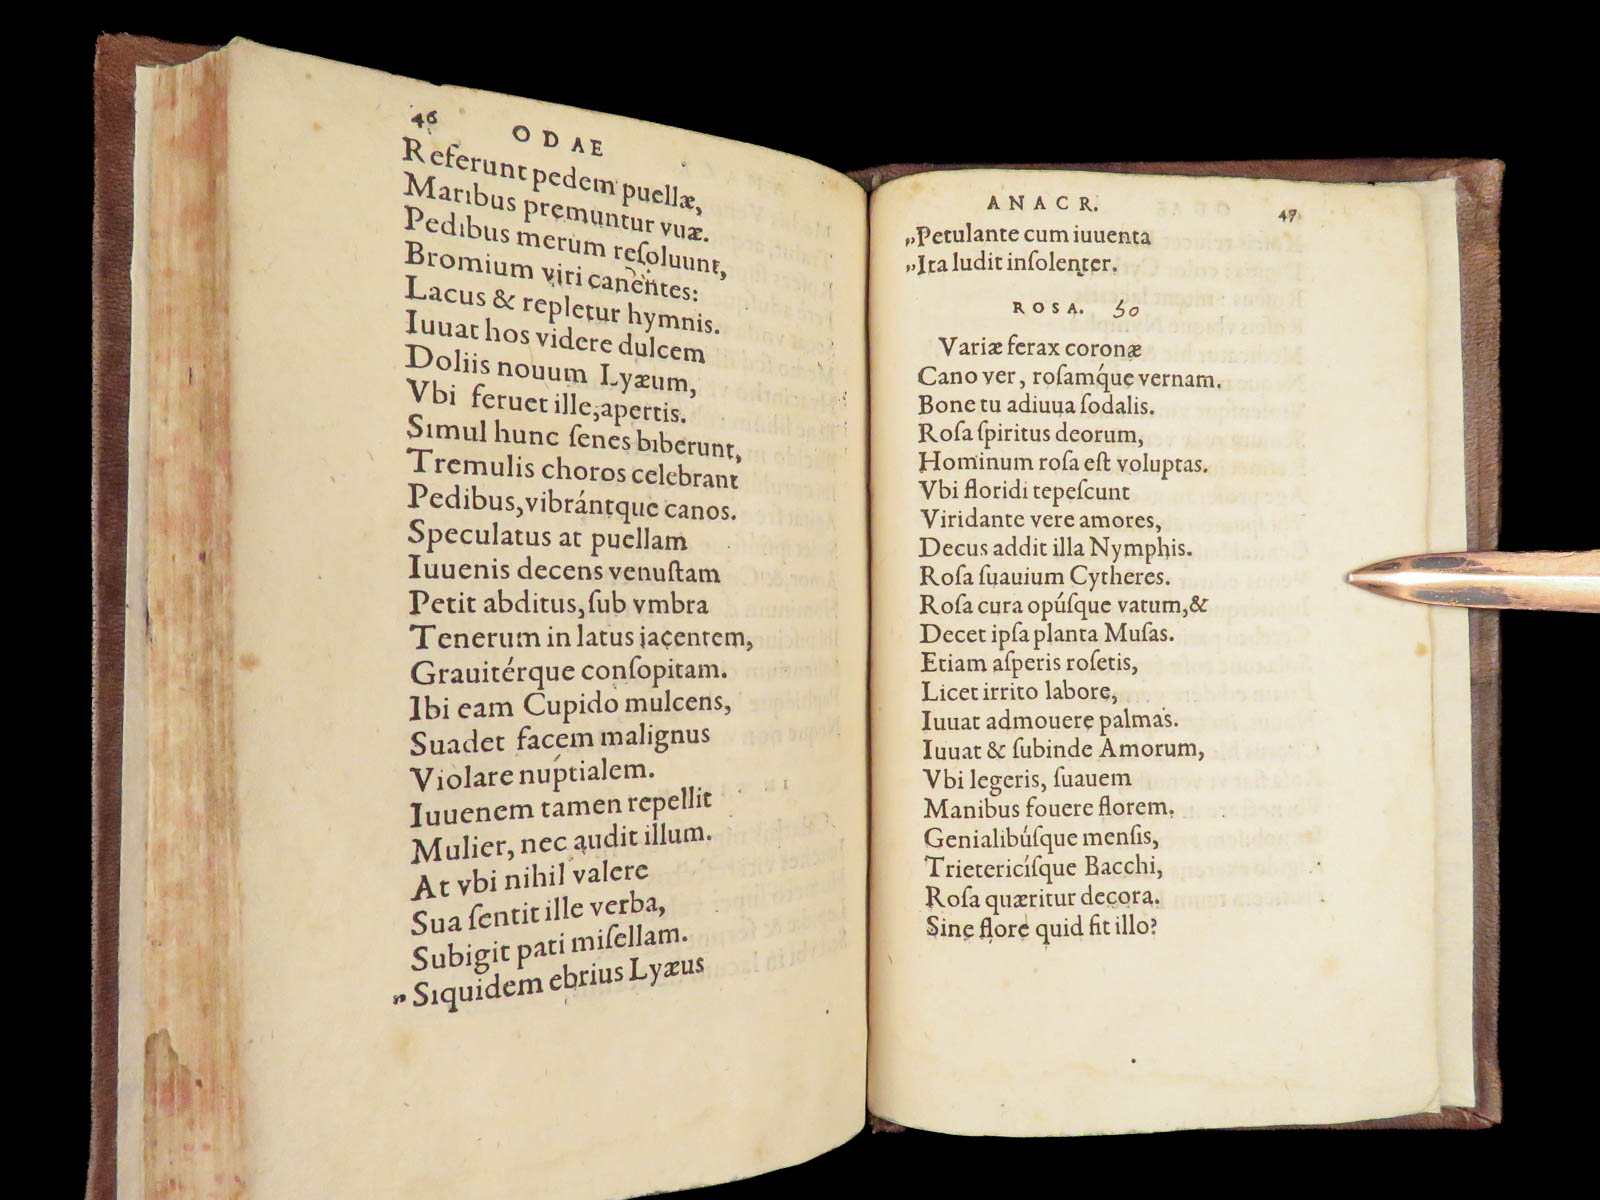 46
ODAE
Referunt pedem puellæ,
Maribus premuntur vuæ.
Pedibus merum reſoluunt,
Bromium viri canentes:
Lacus & repletur hymnis.
Iuuat hos videre dulcem
Doliis nouum Lyæum,
Vbi feruet ille, apertis.
Simul hunc ſenes biberunt,
Tremulis choros celebrant
Pedibus, vibrántque canos.
Speculatus at puellam
Iuuenis decens venuſtam
Petit abditus, ſub vmbra
Tenerum in latus jacentem,
Grauitérque conſopitam.
Ibi eam Cupido mulcens,
Suadet facem malignus
Violare nuptialem.
Iuuenem tamen repellit
Mulier, nec audit illum.
At vbi nihil valere
Sua ſentit ille verba,
Subigit pati miſellam.
„Siquidem ebrius Lyæus
ANACR.
47
„Petulante cum iuuenta
„Ita ludit inſolenter.
ROSA. 50
Variæ ferax coronæ
Cano ver, roſamq́ue vernam.
Bone tu adiuua ſodalis.
Roſa ſpiritus deorum,
Hominum roſa eſt voluptas.
Vbi floridi tepeſcunt
Viridante vere amores,
Decus addit illa Nymphis.
Roſa ſuauium Cytheres.
Roſa cura opúſque vatum, &
Decet ipſa planta Muſas.
Etiam aſperis roſetis,
Licet irrito labore,
Iuuat admouere palmas.
Iuuat & ſubinde Amorum,
Vbi legeris, ſuauem
Manibus fouere florem.
Genialibúſque menſis,
Trietericíſque Bacchi,
Roſa quæritur decora.
Sine flore quid fit illo?